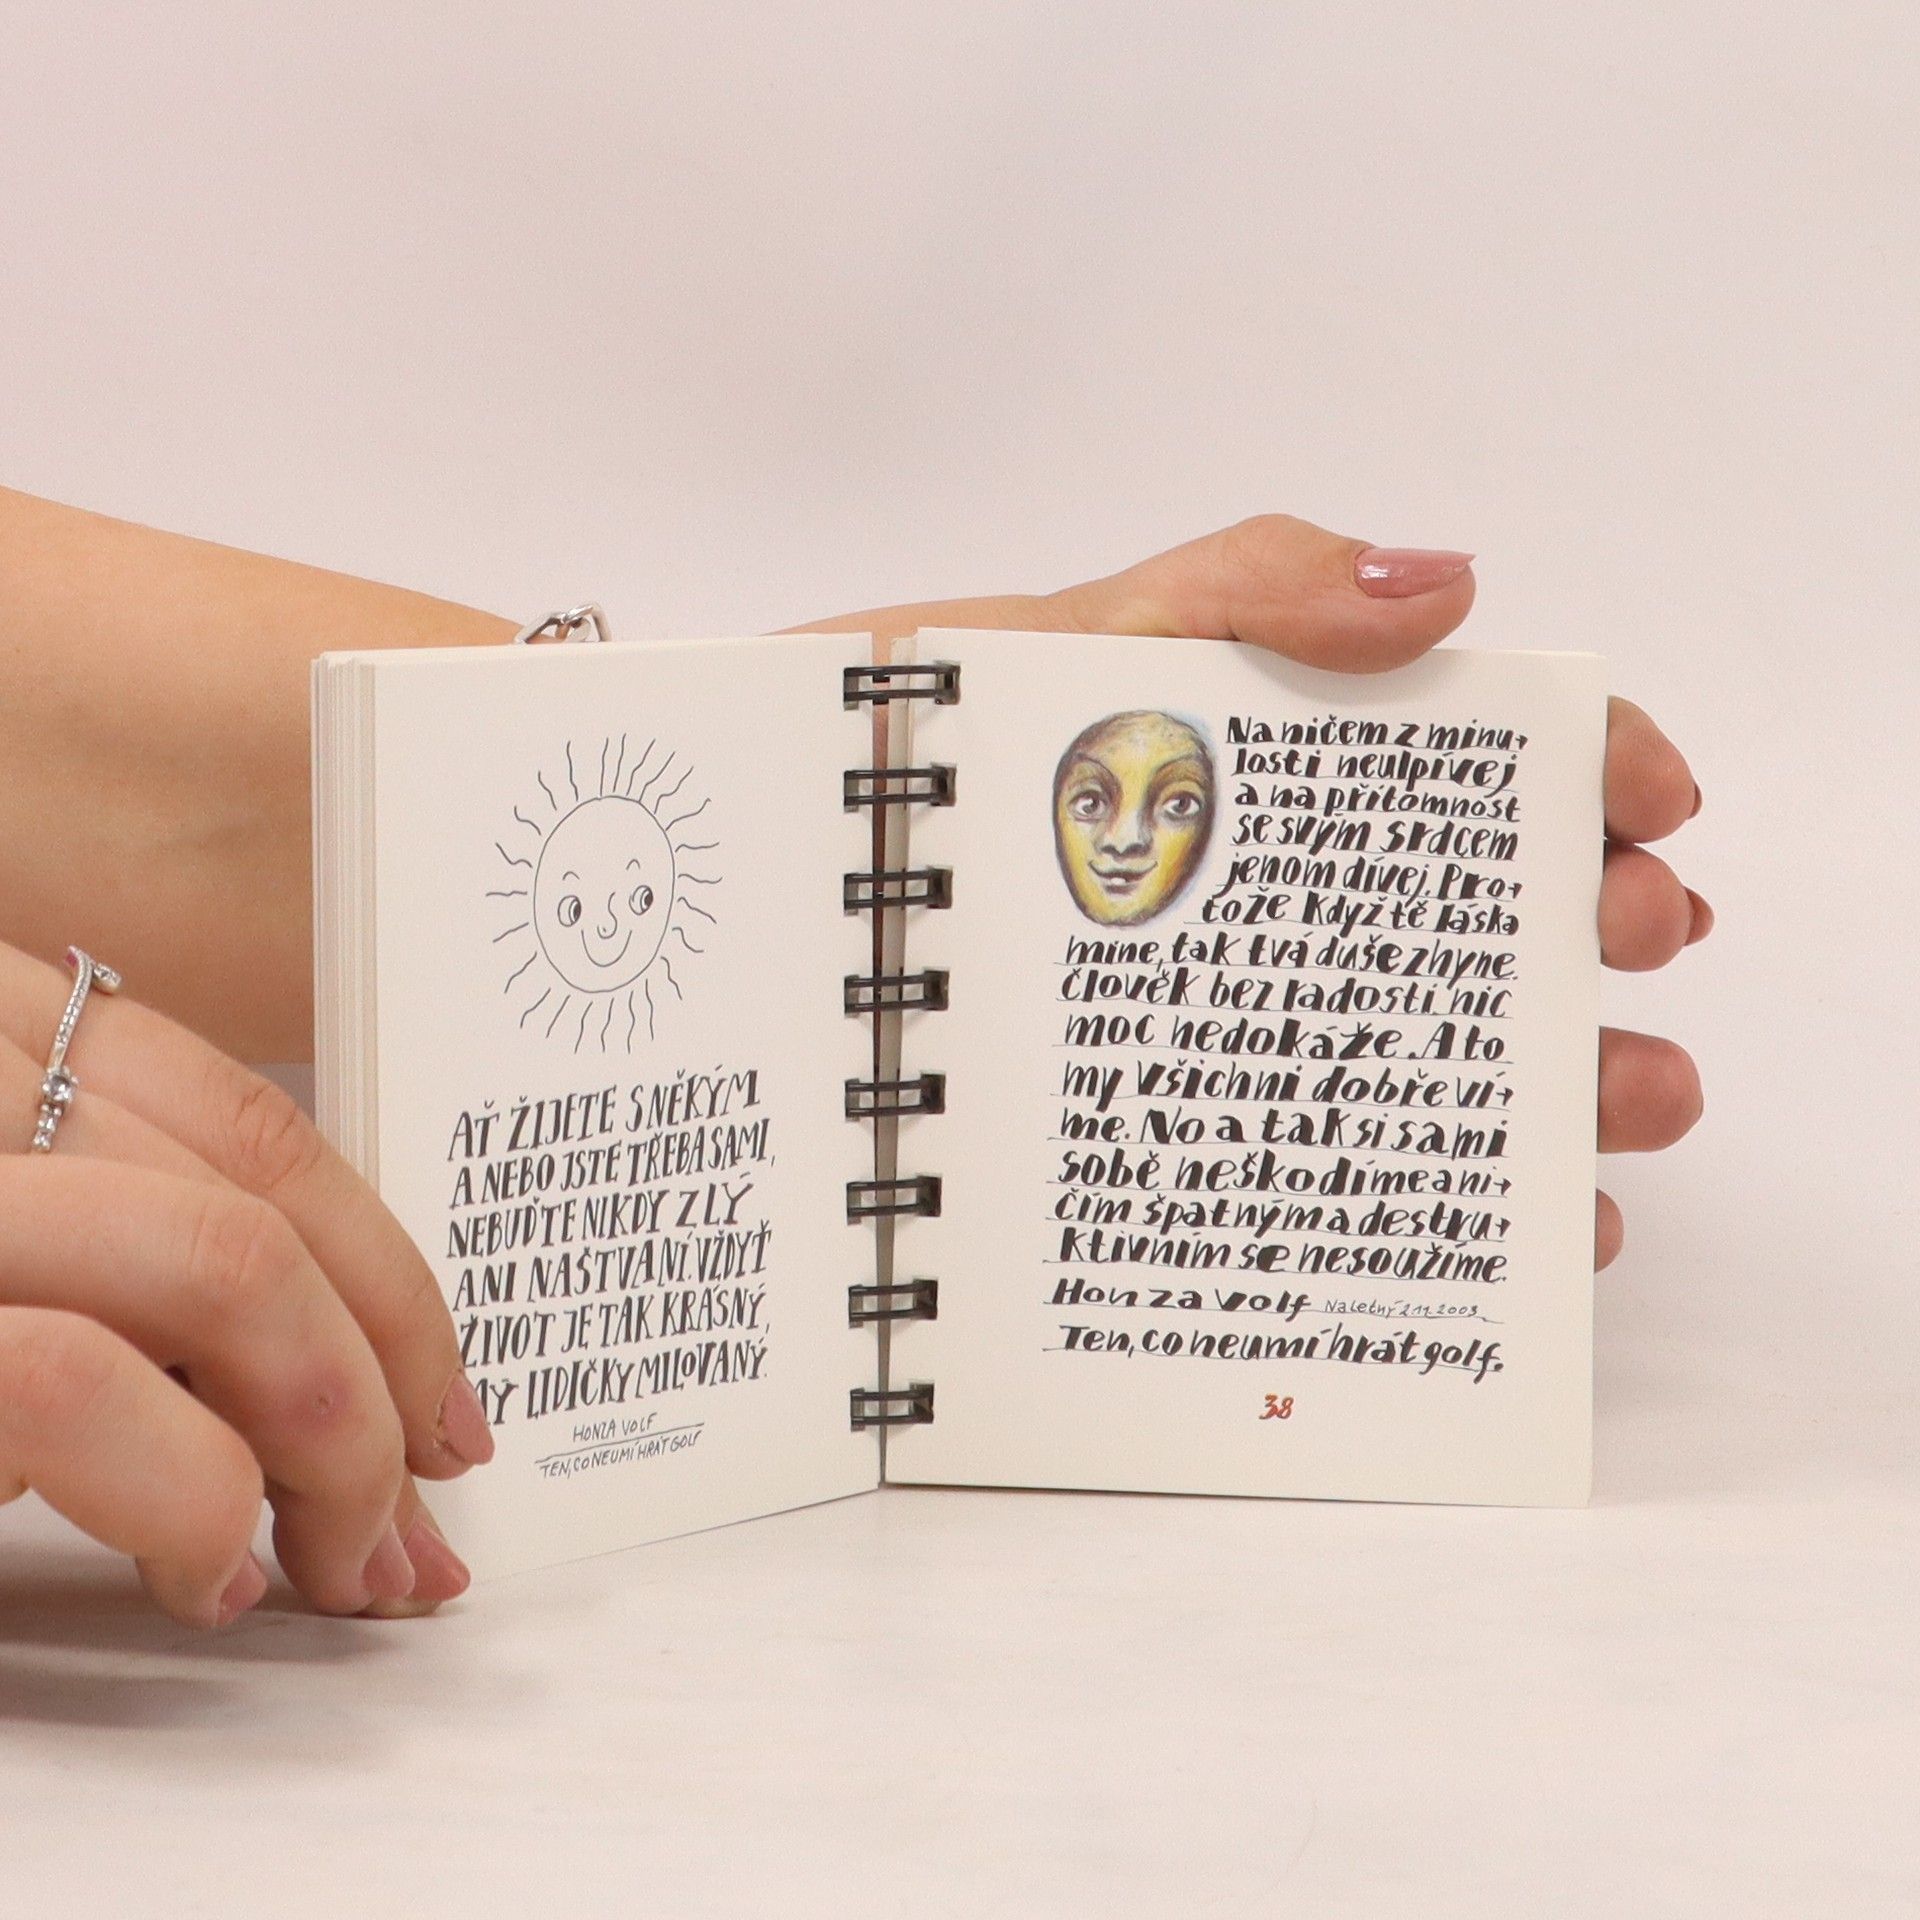 AŤ ŽIJETE S NĚKÝM
A NEBO JSTE TŘEBA SAMI,
NEBUĎTE NIKDY ZLÝ
ANI NAŠTVANÍ. VŽDYŤ
ŽIVOT JE TAK KRÁSNÝ,
MÝ LIDIČKY MILOVANÝ.
HONZA VOLF
TEN, CO NEUMÍ HRÁT GOLF
Na ničem z minu→
losti neulpívej
a na přítomnost
se svým srdcem
jenom dívej. Pro→
tože když tě láska
mine, tak tvá duše zhyne.
Člověk bez radosti nic
moc nedokáže. A to
my všichni dobře ví→
me. No a tak si sami
sobě neškodíme a ni→
čím špatným a destru→
ktivním se nesoužíme.
Honza Volf Na Letný 2.11.2003
Ten, co neumí hrát golf.
38